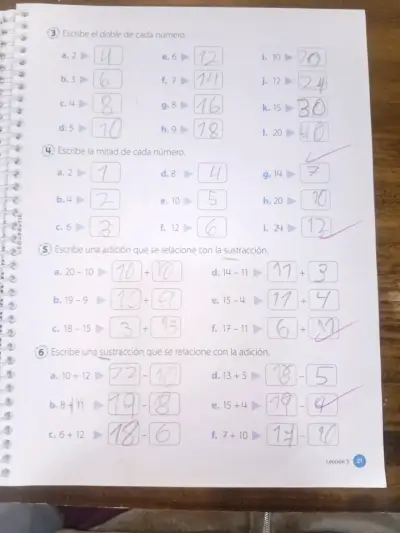 3 Escribe el doble de cada número.
a. 2 4 e. 6 12 i. 10 20
b. 3 6 f. 7 14 j. 12 24
c. 4 8 g. 8 16 k. 15 30
d. 5 10 h. 9 18 l. 20 40
4 Escribe la mitad de cada número.
a. 2 1 d. 8 4 g. 14 7
b. 4 2 e. 10 5 h. 20 10
c. 6 3 f. 12 6 i. 24 12
5 Escribe una adición que se relacione con la sustracción.
a. 20 – 10 10 + 10 d. 14 – 11 11 + 3
b. 19 – 9 10 + 9 e. 15 – 4 11 + 4
c. 18 – 15 3 + 15 f. 17 – 11 6 + 11
6 Escribe una sustracción que se relacione con la adición.
a. 10 + 12 22 – 10 d. 13 + 5 18 – 5
b. 8 + 11 19 – 8 e. 15 + 4 19 – 4
c. 6 + 12 18 – 6 f. 7 + 10 17 – 10
Lección 3 21